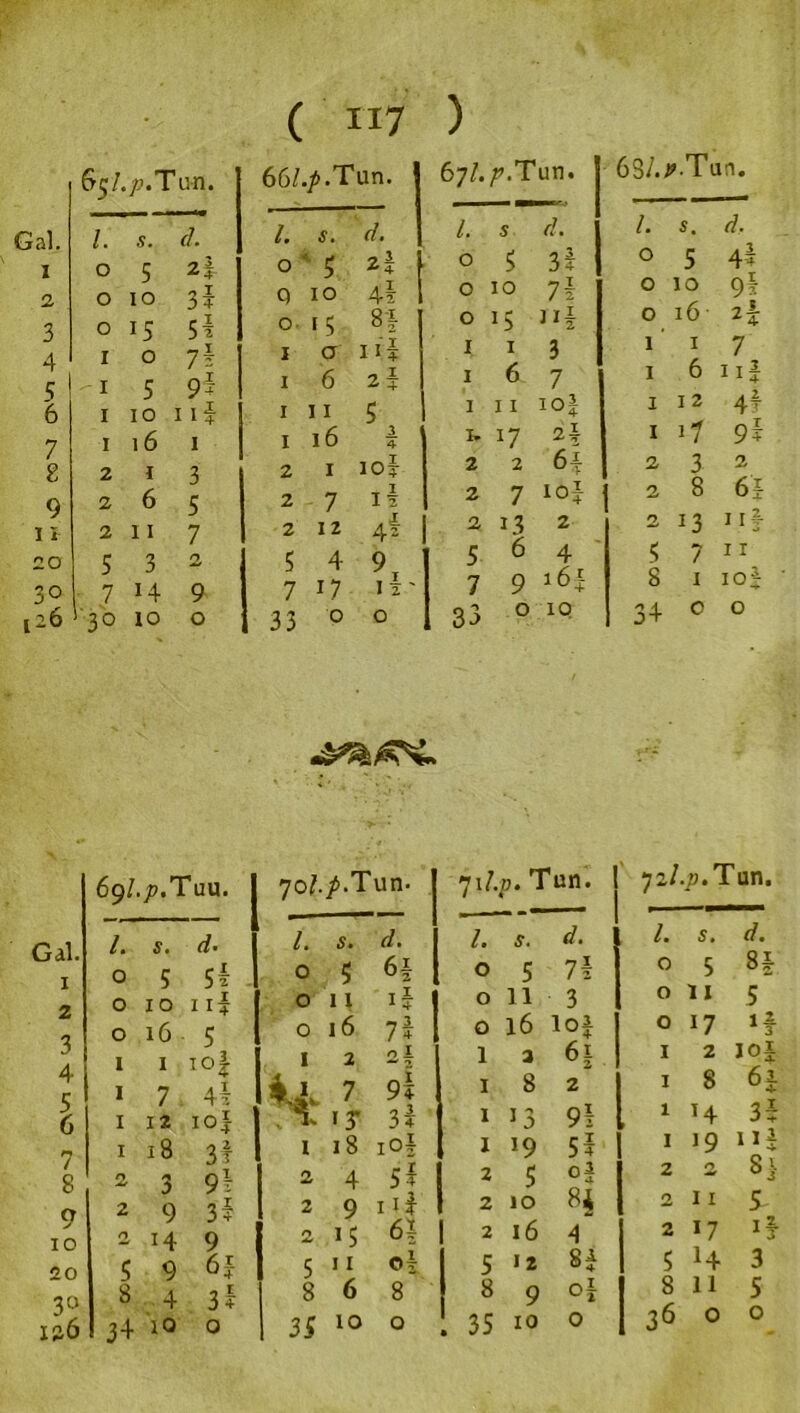 ( 117 )
65l.p.Tun. 66l.p.Tun. 67l.p.Tun. 68l.p.Tun.
Gal. l. s. d. l. s. d. l. s d. l. s. d.
1 0 5 2¾ 0 5 2¾ 0 5 3¾ 0 5 4¾
2 0 10 3¼ 0 10 4½ 0 10 7½ 0 10 9½
3 0 15 5½ 0 15 8½ 0 15 11½ 0 16 2¼
4 1 0 7½ 1 0 11¼ 1 1 3 1 1 7
5 1 5 9½ 1 6 2¼ 1 6 7 1 6 11¾
6 1 10 11¼ 1 11 5 1 11 10¾ 1 12 4½
7 1 16 1 1 16 ¾ 1 17 2½ 1 17 9¼
8 2 1 3 2 1 10¾ 2 2 6¼ 2 3 2
9 2 6 5 2 7 1½ 2 7 10¼ 2 8 6½
11 2 11 7 2 12 4½ 2 13 2 2 13 11½
20 5 3 2 5 4 9 5 6 4 5 7 11
30 7 14 9 7 17 1½ 7 9 16¼ 8 1 10¾
126 30 10 0 33 0 0 33 0 10 34 0 0
69l.p.Tuu. 70l.p.Tun. 71l.p. Tun. 72l.p.Tun.
Gal. l. s. d. l. s. d. l. s. d. l. s. d.
1 0 5 5½ 0 5 6½ 0 5 7½ 0 5 8½
2 0 10 11¼ 0 11 1¼ 0 11 3 0 11 5
3 0 16 5 0 16 7¾ 0 16 10¾ 0 17 1¾
4 1 1 10¾ 1 2 2½ 1 2 6½ 1 2 10¼
5 1 7 4½ 1 7 9¼ 1 8 2 1 8 6¾
6 1 12 10¼ 1 13 3¾ 1 13 9½ 1 14 3¼
7 1 18 3¾ 1 18 10½ 1 19 5¼ 1 19 11¾
8 2 3 9½ 2 4 5¼ 2 5 0¾ 2 2 8½
9 2 9 3¼ 2 9 11¾ 2 10 8¼ 2 11 5
10 2 14 9 2 15 6½ 2 16 4 2 17 1¾
20 5 9 6¼ 5 11 0½ 5 12 8¼ 5 14 3
30 8 4 3¼ 8 6 8 8 9 0½ 8 11 5
126 34 10 0 35 10 0 35 10 0 36 0 0